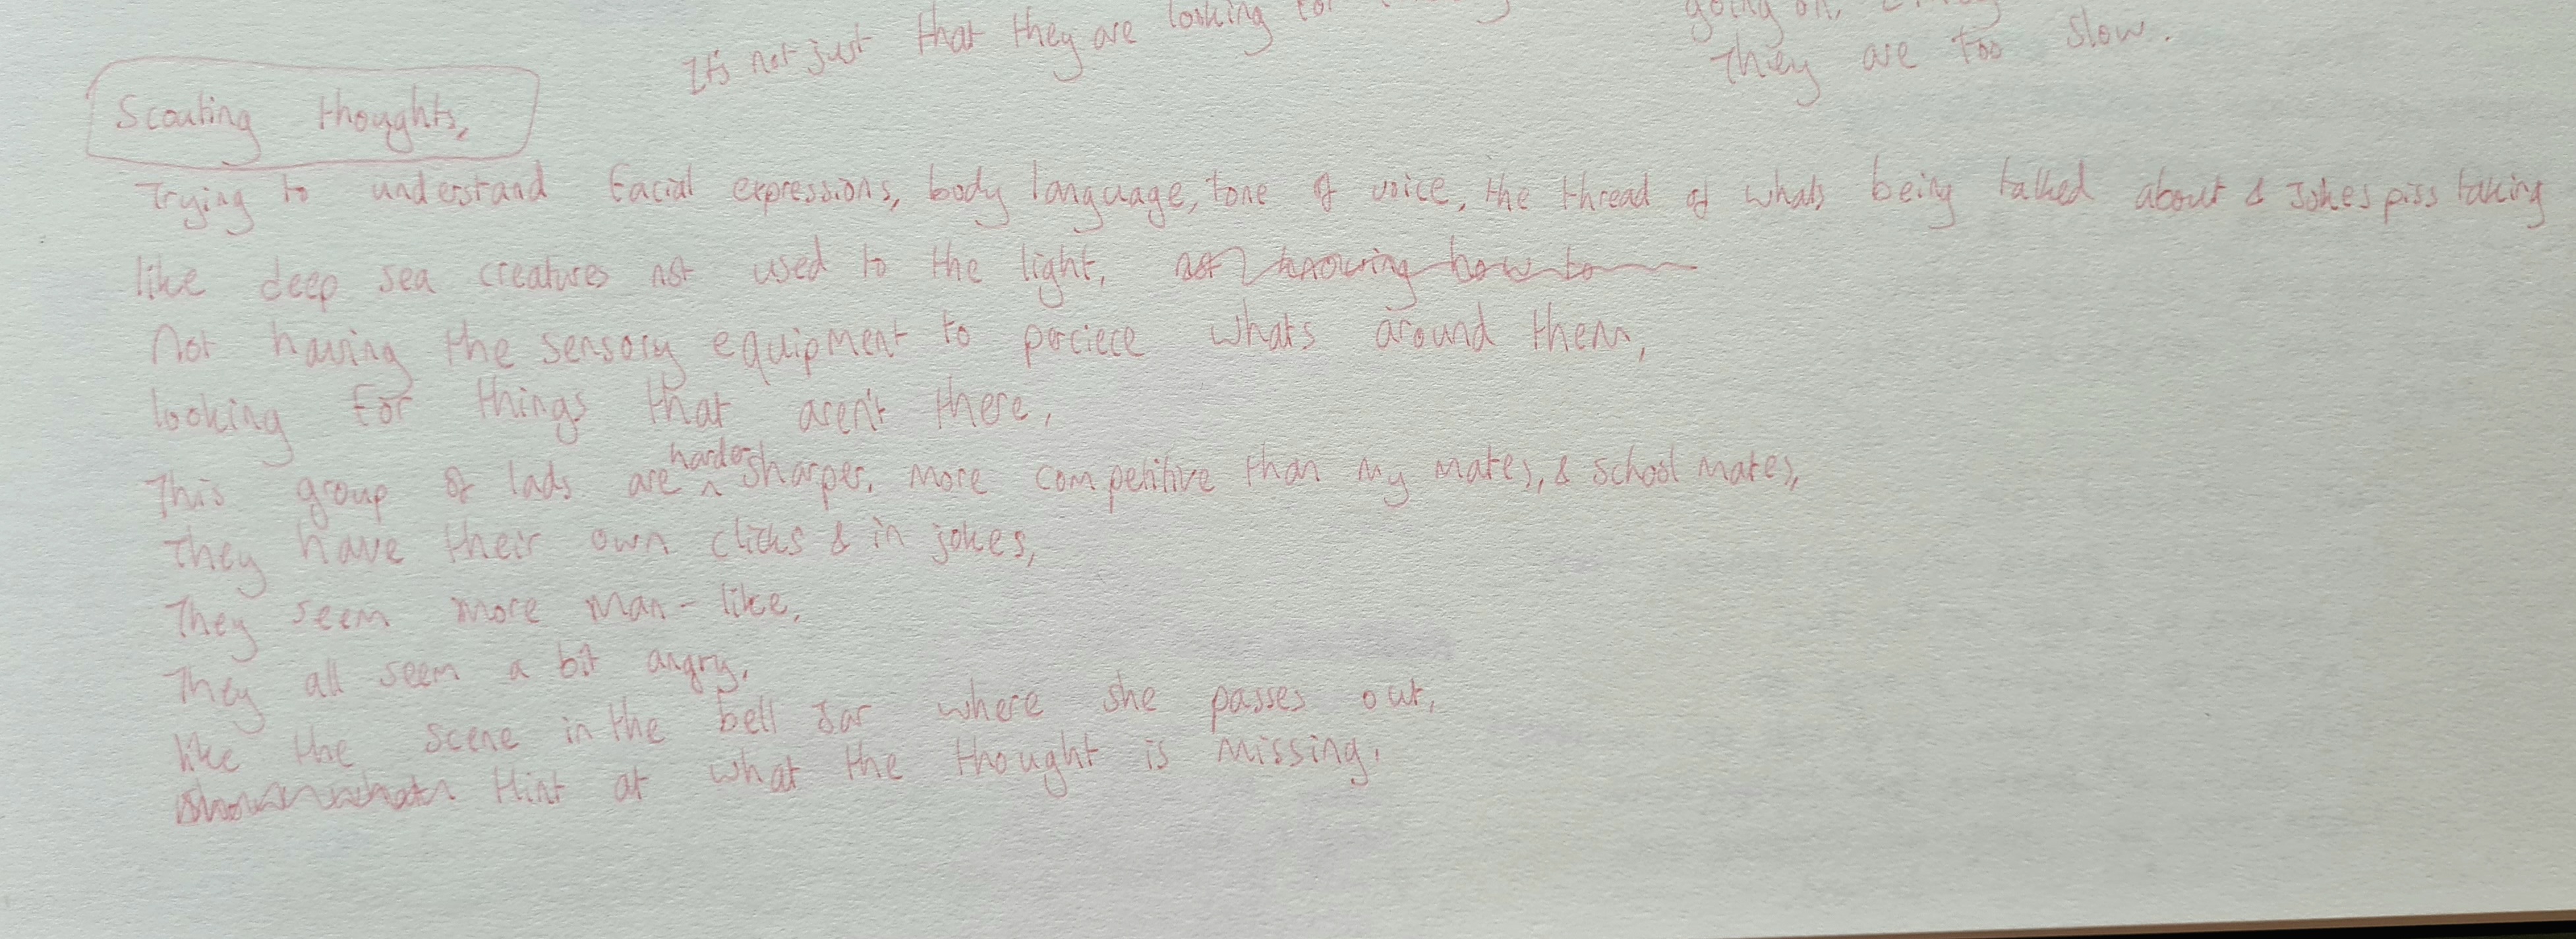 It's not just that they are looking for
going on,
They are too slow.
Scouting thoughts,
Trying to understand facial expressions, body language, tone of voice, the thread of whats being talked about & Jokes piss taking
like deep sea creatures not used to the light, not knowing how to
Not having the sensory equipment to perciece whats around them,
looking for things that aren't there,
This group of lads are harder sharper, more competitive than my mates, & school mates,
They have their own clicks & in jokes,
They seem more man-like,
They all seem a bit angry,
like the scene in the bell Jar where she passes out,
Hint at what the thought is missing.